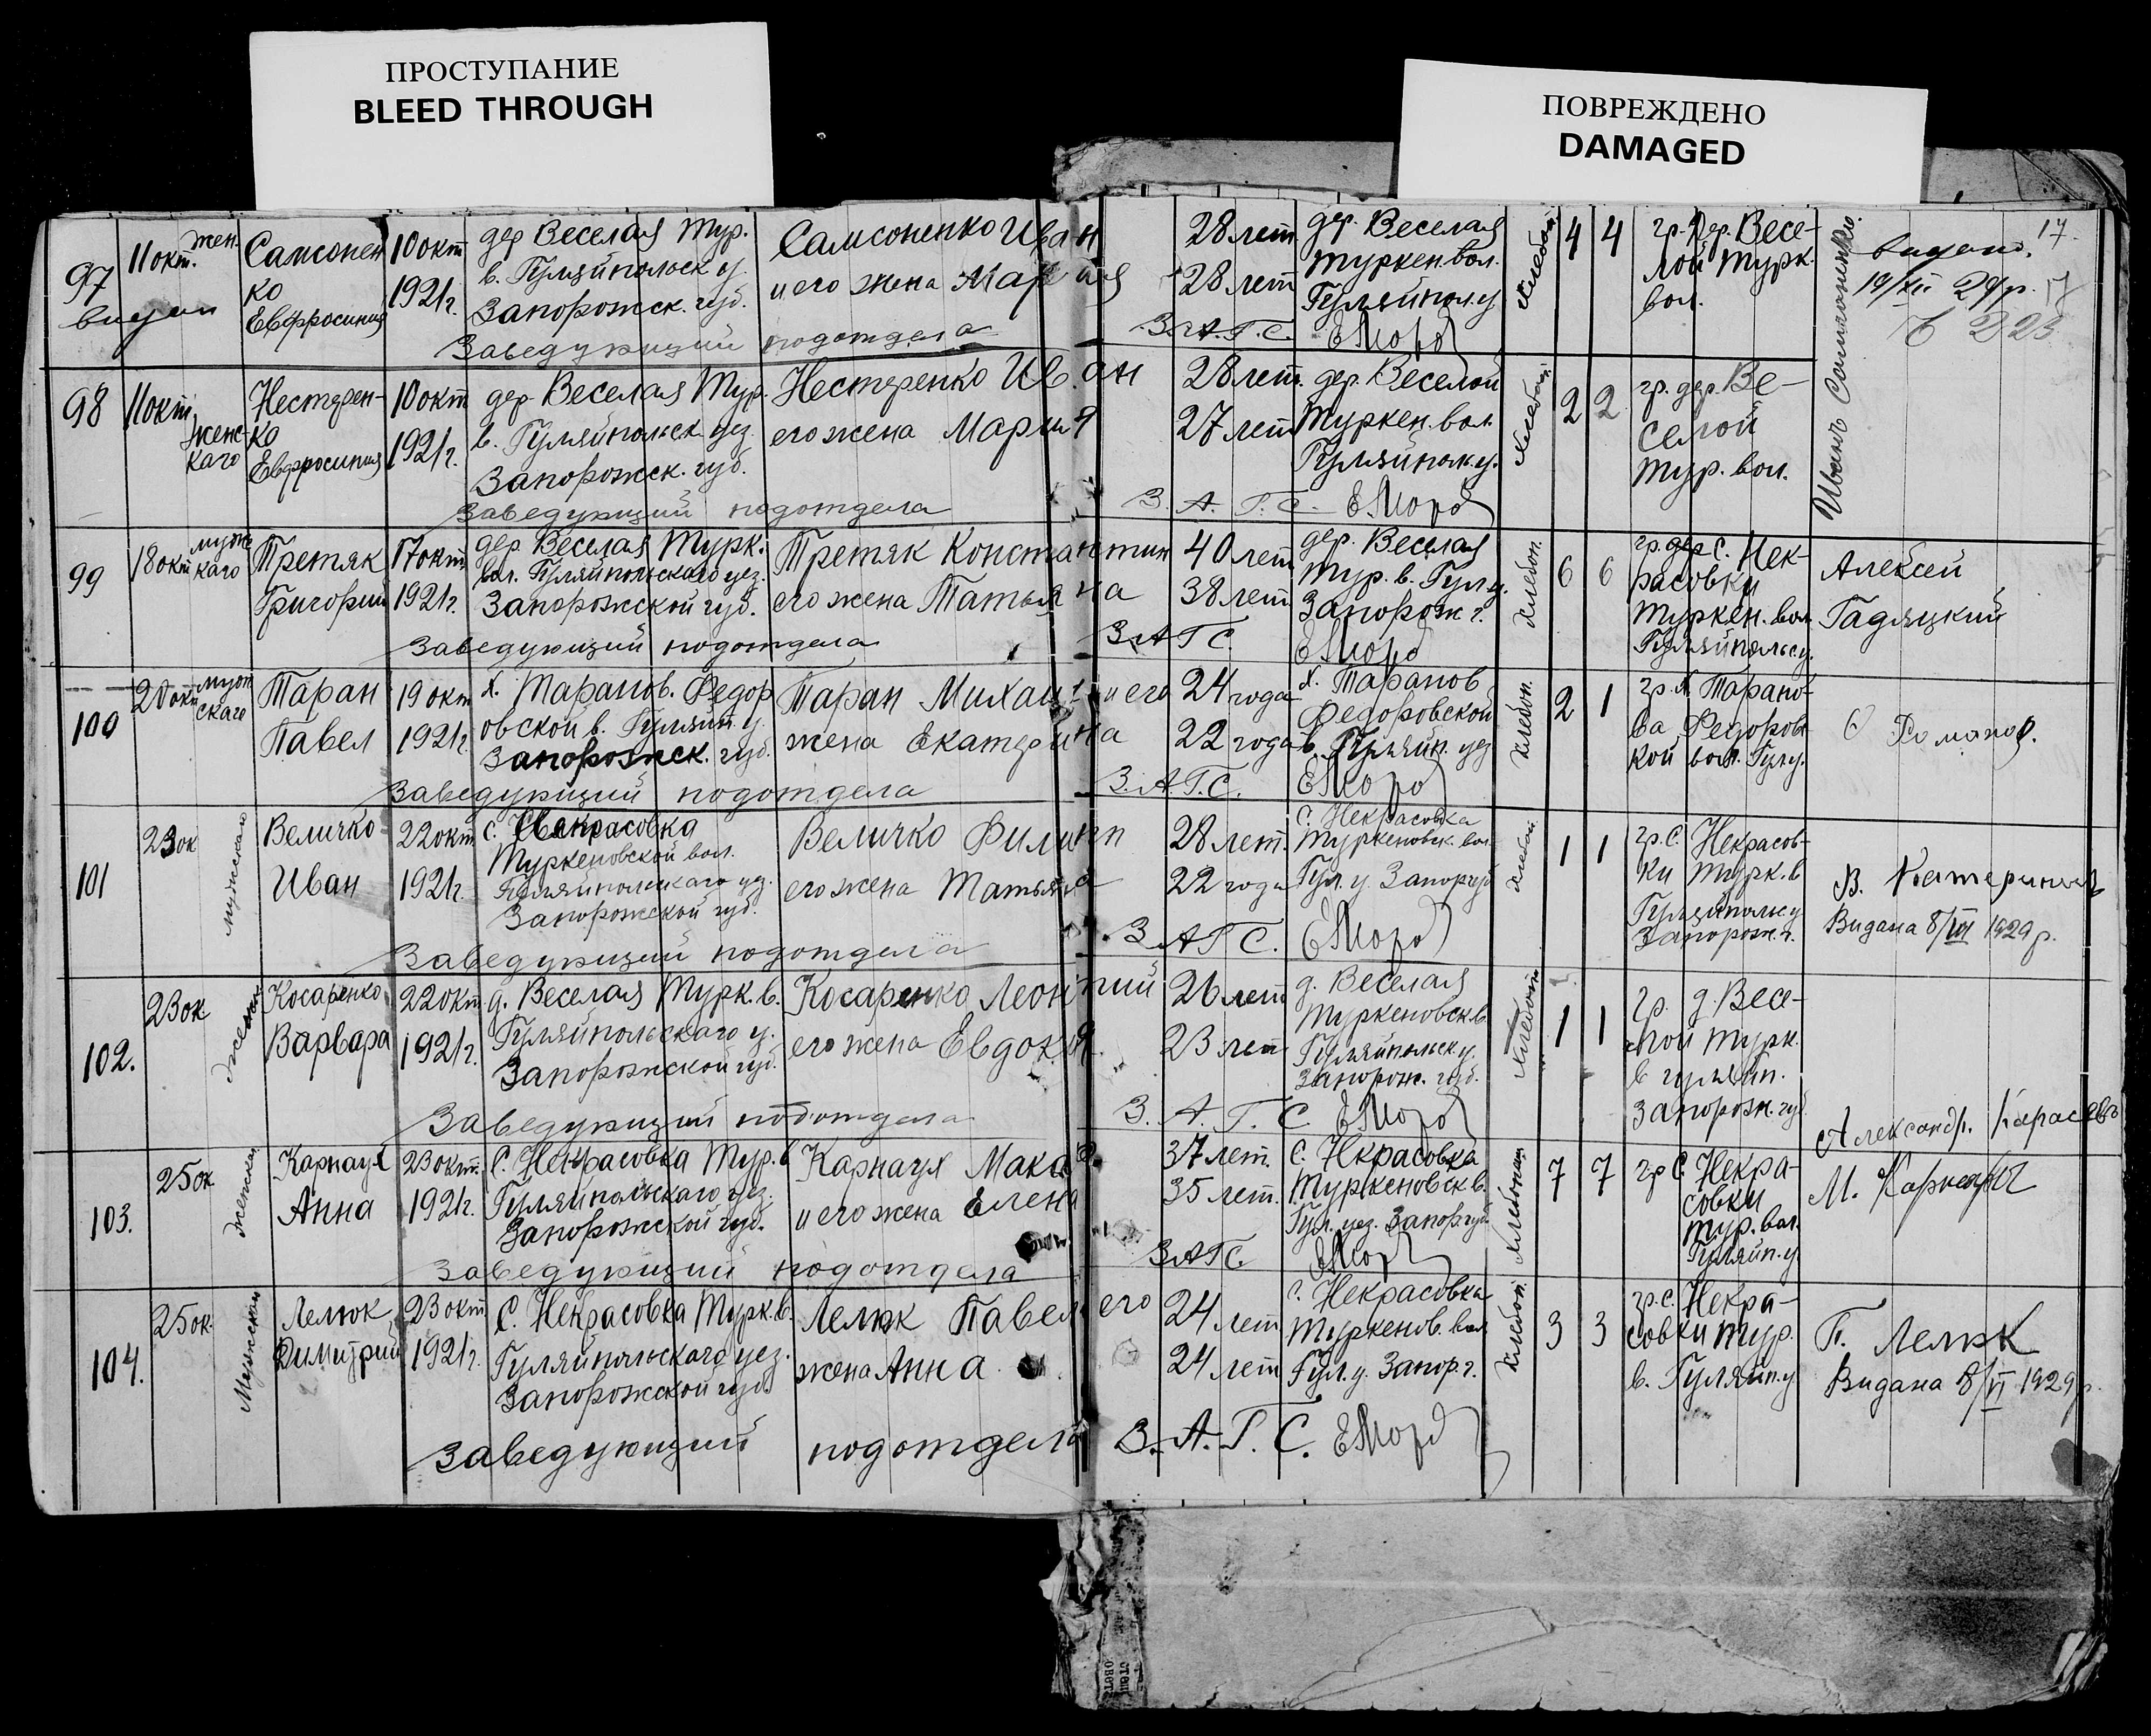 ПРОСТУПАНИЕ
BLEED THROUGH
ПОВРЕЖДЕНО
DAMAGED
17.
97
11 окт.
жен.
Самсонен
ко
Евфросиния
10 окт
1921г.
дер Веселая Тур.
в. Гуляйпольск у.
Запорожск. губ.
Самсоненко Иван
и его жена Мария
28 лет
28 лет
дер. Веселая
Туркен вол.
Гуляйпол. у
4
4
гр. дер. Весе-
лой Турк.
вол.
Заведующий подотдела З.А.Г.С.
98
11 окт.
женс-
каго
Нестерен-
ко
Евфросиния
10 окт
1921г.
дер Веселая Тур.
в. Гуляйпольск уез.
Запорожск. губ.
Нестеренко Иван
его жена Мария
28 лет.
27 лет
дер. Веселой
Туркен. вол.
Гуляйполь у.
2
2
гр. дер. Ве-
селой
Тур. вол.
Заведующий подотдела З.А.Г.С.
99
18 окт
муж
каго
Третяк
Григорий
17 окт
1921г.
дер Веселая Турк.
вол. Гуляйпольскаго уез.
Запорожской губ.
Третяк Константин
его жена Татьяна
40 лет
38 лет
дер. Веселая
Тур. в. Гул у.
Запорож г.
хлебоп.
6
6
гр. дер с. Нек-
расовки
Туркен. вол
Гуляйпольс у.
Алексей
Гадяцкий
Заведующий подотдела ЗАГС.
100
20 окт
муж
скаго
Таран
Павел
19 окт
1921г.
х. Таранов. Федор
овской в. Гуляйп. у.
Запорожск. губ.
Таран Михаил и его
жена Екатерина
24 года
22 года
х. Таранов
Федоровской
в. Гуляйп. уез
хлебоп.
2
1
гр. х. Тарано-
ва Федоров
кой вол. Гул у.
Заведующий подотдела З.А.Г.С.
101
23 ок
мужскаго
Величко
Иван
22 окт
1921г.
с. Некрасовка
Туркеновской вол.
Гуляйпольскаго уез.
Запорожской губ.
Величко Филипп
его жена Татьяна
28 лет.
22 года
с. Некрасовка
Туркеновск. вол.
Гул. у. Запор губ
1
1
гр. с. Некрасов-
ки Турк. в
Гуляйпольс у
Запорож. г.
Видана 8/VII 1929 р.
Заведующий подотдела ЗАГС.
102.
23 ок
Косаренко
Варвара
22 окт
1921г.
д. Веселая Турк. в.
Гуляйпольскаго у.
Запорожской губ.
Косаренко Леонтий
его жена Евдокия.
26 лет
23 лет
д. Веселая
Туркеновск в.
Гуляйпольск у.
Запорож. губ.
1
1
гр. д. Весе-
лой Турк.
в гуляйп.
Запорож. губ
Александр. Карасевъ
Заведующий подотдела З.А.Г.С
103.
25 ок
женскаго
Карнаух
Анна
23 окт.
1921г.
с. Некрасовка Тур. в
Гуляйпольскаго уез.
Запорожской губ.
Карнаух Макар.
и его жена Елена
37 лет.
35 лет.
с. Некрасовка
Туркеновск в.
Гул. уез. Запор губ
хлебопаш
7
7
гр с. Некра-
совки
Тур. вол.
Гуляйп. у
М. Карнаух
Заведующий подотдела ЗАГС.
104.
25 ок.
Мужской
Лелюк
Димитрий
23 окт
1921г.
с. Некрасовка Турк. в.
Гуляйпольскаго уез.
Запорожской губ.
Лелюк Павел его
жена Анна
24 лет
24 лет
с. Некрасовка
Туркенов. вол
Гул. у. Запор г.
хлебоп.
3
3
гр. с. Некра-
совки Тур.
в. Гуляйп. у
П. Лелюк
Видана 8/VI 1929 р.
Заведующий подотдела З.А.Г.С.